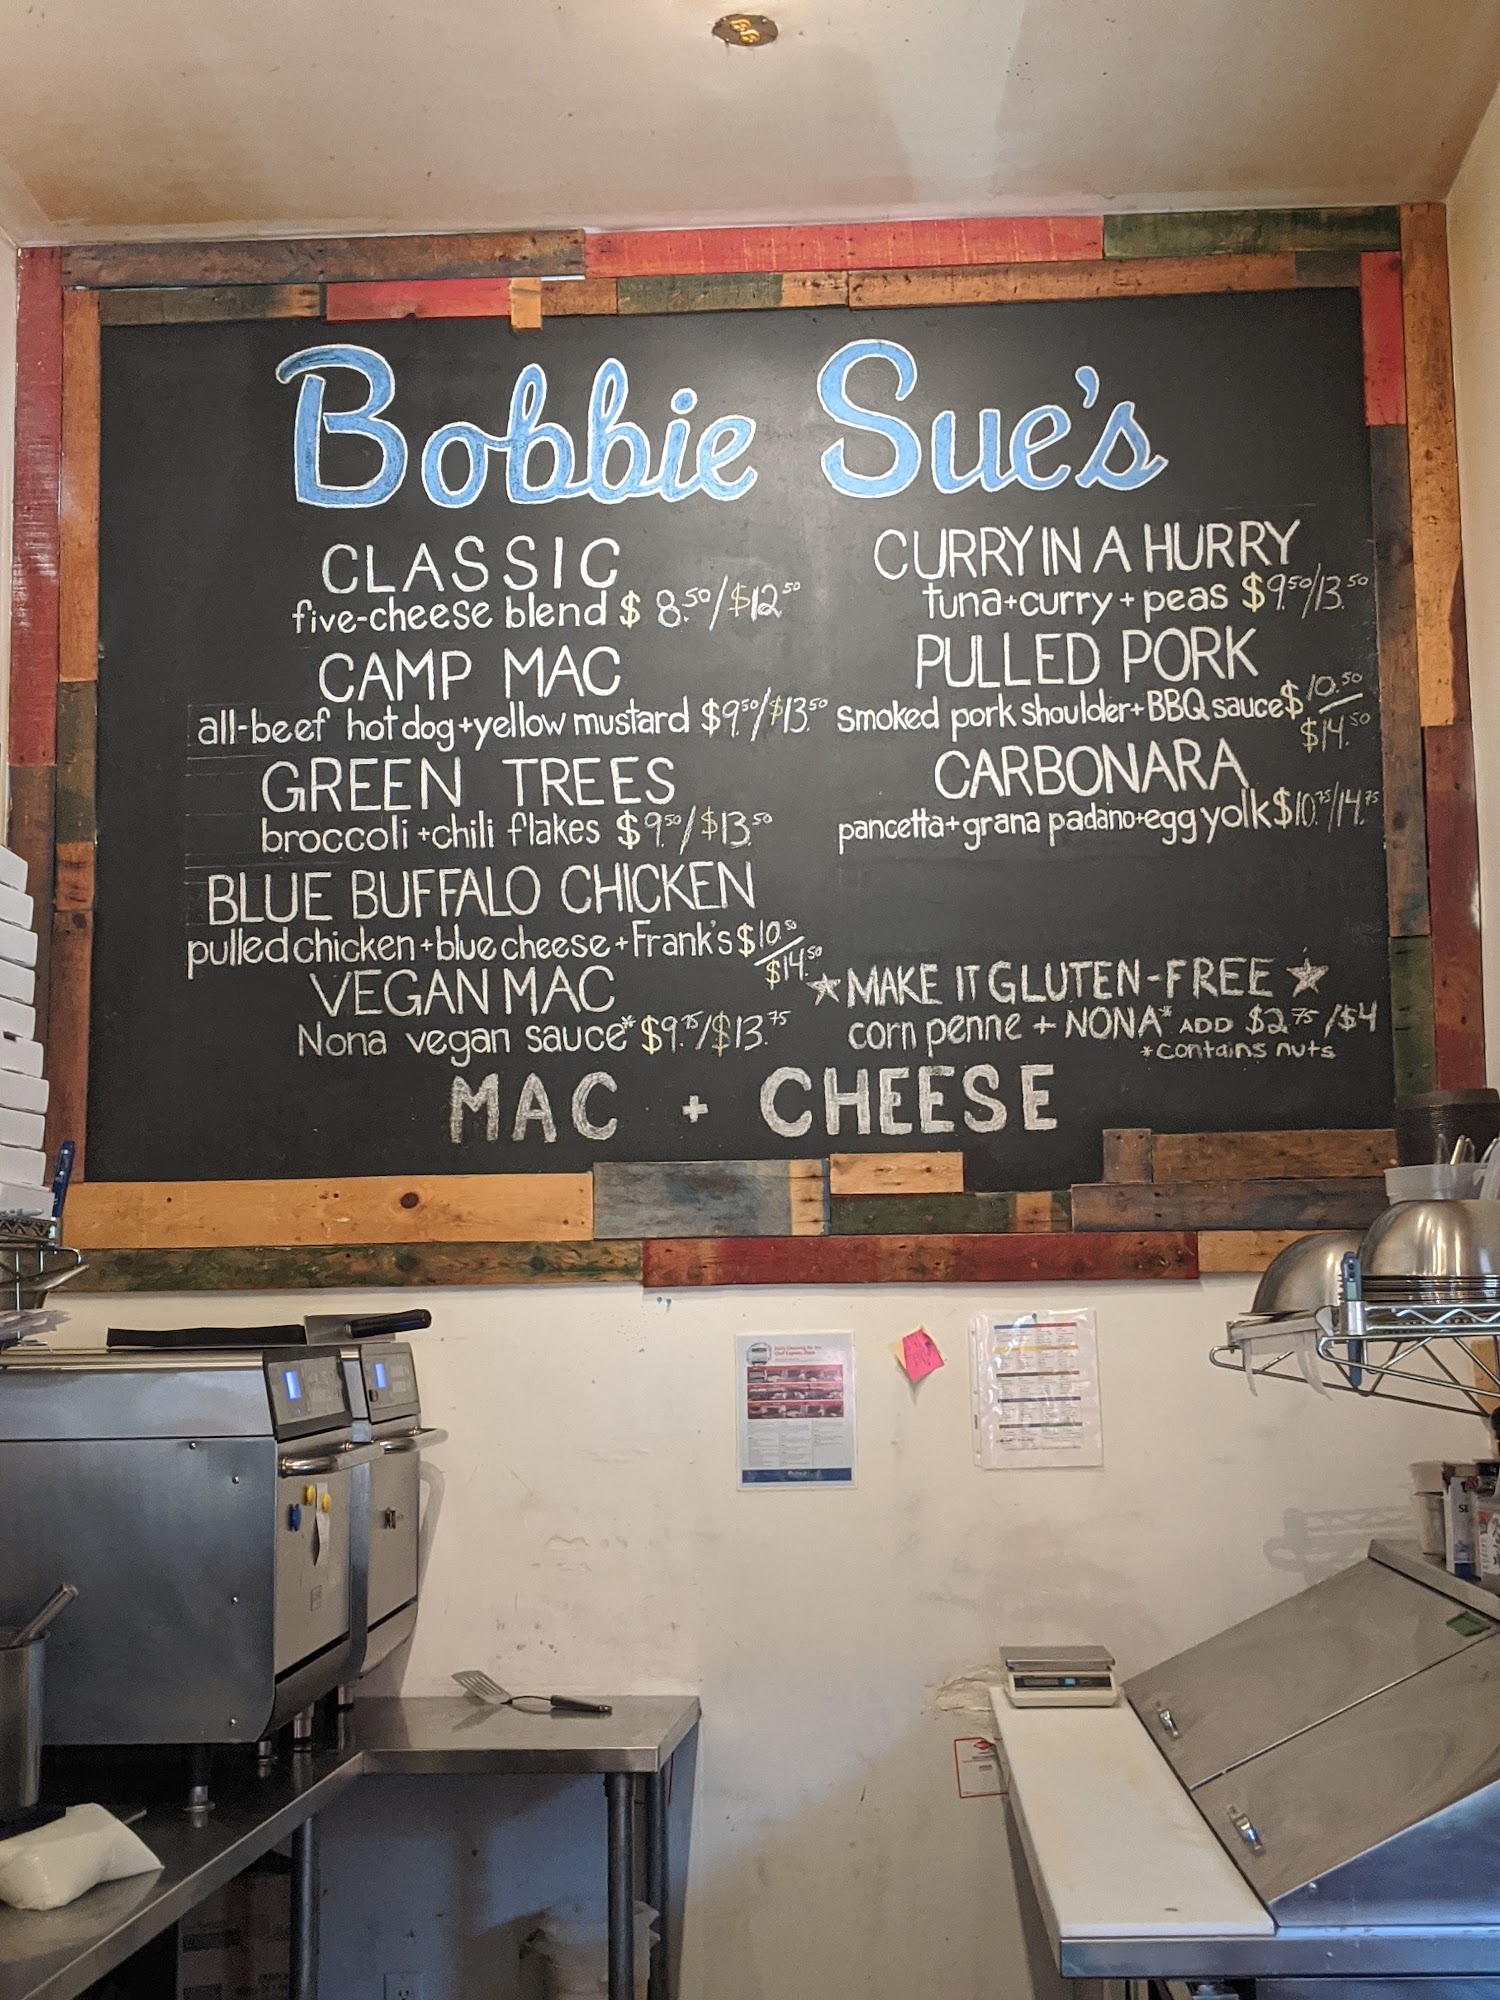 Bobbie Sue's
CLASSIC
five-cheese blend $8.50/$12.50
CAMP MAC
all-beef hot dog+yellow mustard $9.50/$13.50
GREEN TREES
broccoli+chili flakes $9.50/$13.50
BLUE BUFFALO CHICKEN
pulled chicken+blue cheese+Frank's $10.50/
$14.50
VEGAN MAC
Nona vegan sauce* $9.75/$13.75
CURRY IN A HURRY
tuna+curry+peas $9.50/13.50
PULLED PORK
smoked pork shoulder+BBQ sauce $10.50/
$14.50
CARBONARA
pancetta+grana padano+egg yolk $10.75/14.75
★MAKE IT GLUTEN-FREE★
corn penne + NONA* ADD $2.75/$4
*contains nuts
MAC + CHEESE